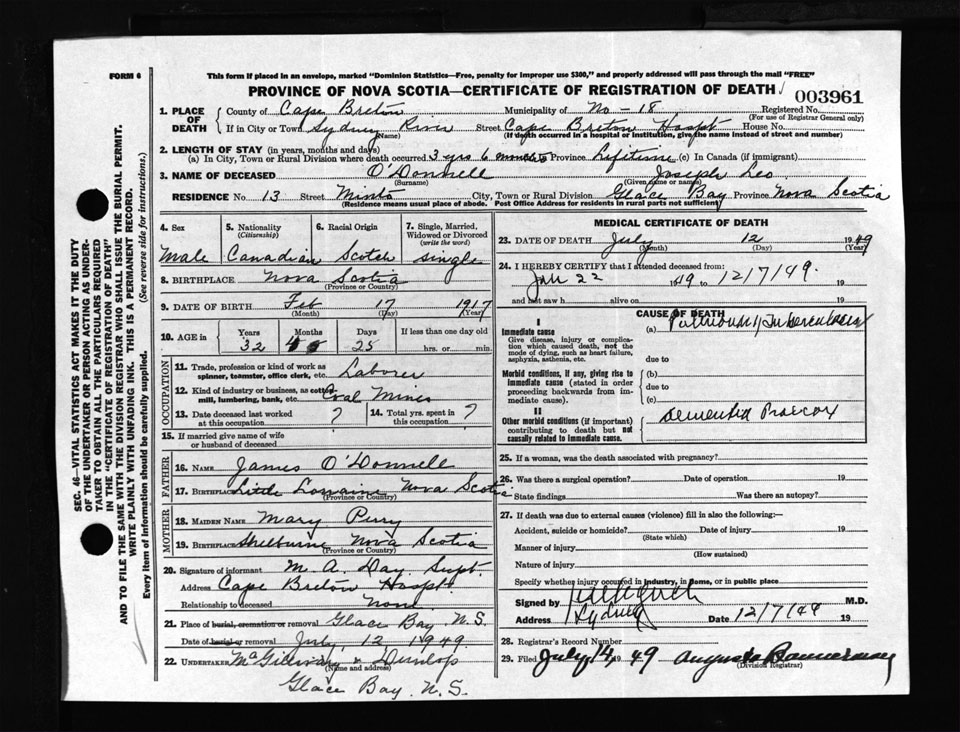 FORM 6
This form if placed in an envelope, marked "Dominion Statistics—Free, penalty for improper use $300," and properly addressed will pass through the mail "FREE"
PROVINCE OF NOVA SCOTIA—CERTIFICATE OF REGISTRATION OF DEATH
003961
1. PLACE OF DEATH
County of Cape Breton Municipality of No-18 Registered No.
(For use of Registrar General only)
If in City or Town Sydney River Street Cape Breton Hospt House No.
(Name) (If death occurred in a hospital or institution, give the name instead of street and number)
2. LENGTH OF STAY (in years, months and days)
(a) In City, Town or Rural Division where death occurred 3 yrs 6 months Province Lifetime (c) In Canada (if immigrant)
3. NAME OF DECEASED O'Donnell Joseph Leo
(Surname) (Given name or names)
RESIDENCE No. 13 Street Minto City, Town or Rural Division Glace Bay Province Nova Scotia
(Residence means usual place of abode. Post Office Address for residents in rural parts not sufficient)
4. Sex
Male
5. Nationality
(Citizenship)
Canadian
6. Racial Origin
Scotch
7. Single, Married, Widowed or Divorced
(write the word)
Single
8. BIRTHPLACE Nova Scotia
(Province or Country)
9. DATE OF BIRTH Feb 17 1917
(Month) (Day) (Year)
10. AGE in
Years Months Days If less than one day old
32 25 hrs. or min.
OCCUPATION
11. Trade, profession or kind of work as
spinner, teamster, office clerk, etc. Laborer
12. Kind of industry or business, as cotton
mill, lumbering, bank, etc. Coal Mines
13. Date deceased last worked
at this occupation ?
14. Total yrs. spent in
this occupation ?
15. If married give name of wife
or husband of deceased
FATHER
16. NAME James O'Donnell
17. BIRTHPLACE Little Lorraine Nova Scotia
(Province or Country)
MOTHER
18. MAIDEN NAME Mary Perry
19. BIRTHPLACE Shelburne Nova Scotia
(Province or Country)
20. Signature of informant M. A. Day Supt.
Address Cape Breton Hospt.
Relationship to deceased None
21. Place of burial, cremation or removal Glace Bay N.S.
Date of burial or removal July 12 1949
22. UNDERTAKER McGillivray & Dunlop
(Name and address)
Glace Bay. N.S.
MEDICAL CERTIFICATE OF DEATH
23. DATE OF DEATH July 12 1949
(Month) (Day) (Year)
24. I HEREBY CERTIFY that I attended deceased from:
Jan 22 19 to 12/7/49. 19
and last saw h alive on 19
CAUSE OF DEATH
I
Immediate cause
Give disease, injury or complication which caused death, not the mode of dying, such as heart failure, asphyxia, asthenia, etc.
(a) Pulmonary Tuberculosis
due to
Morbid conditions, if any, giving rise to immediate cause (stated in order proceeding backwards from immediate cause).
(b)
due to
(c)
II
Other morbid conditions (if important) contributing to death but not causally related to immediate cause.
Dementia Praecox
25. If a woman, was the death associated with pregnancy?
26. Was there a surgical operation? Date of operation 19
State findings Was there an autopsy?
27. If death was due to external causes (violence) fill in also the following:—
Accident, suicide or homicide? Date of injury 19
(State which)
Manner of injury
(How sustained)
Nature of injury
Specify whether injury occurred in industry, in home, or in public place
Signed by M.D.
Address Sydney Date 12/7/49 19
28. Registrar's Record Number
29. Filed July 14, 1949
(Division Registrar)
SEC. 46—VITAL STATISTICS ACT MAKES IT THE DUTY
OF THE UNDERTAKER OR PERSON ACTING AS UNDER-
TAKER TO OBTAIN ALL THE PARTICULARS REQUIRED
IN THE "CERTIFICATE OF REGISTRATION OF DEATH"
AND TO FILE THE SAME WITH THE DIVISION REGISTRAR WHO SHALL ISSUE THE BURIAL PERMIT.
WRITE PLAINLY WITH UNFADING INK. THIS IS A PERMANENT RECORD.
Every item of information should be carefully supplied. (See reverse side for instructions.)